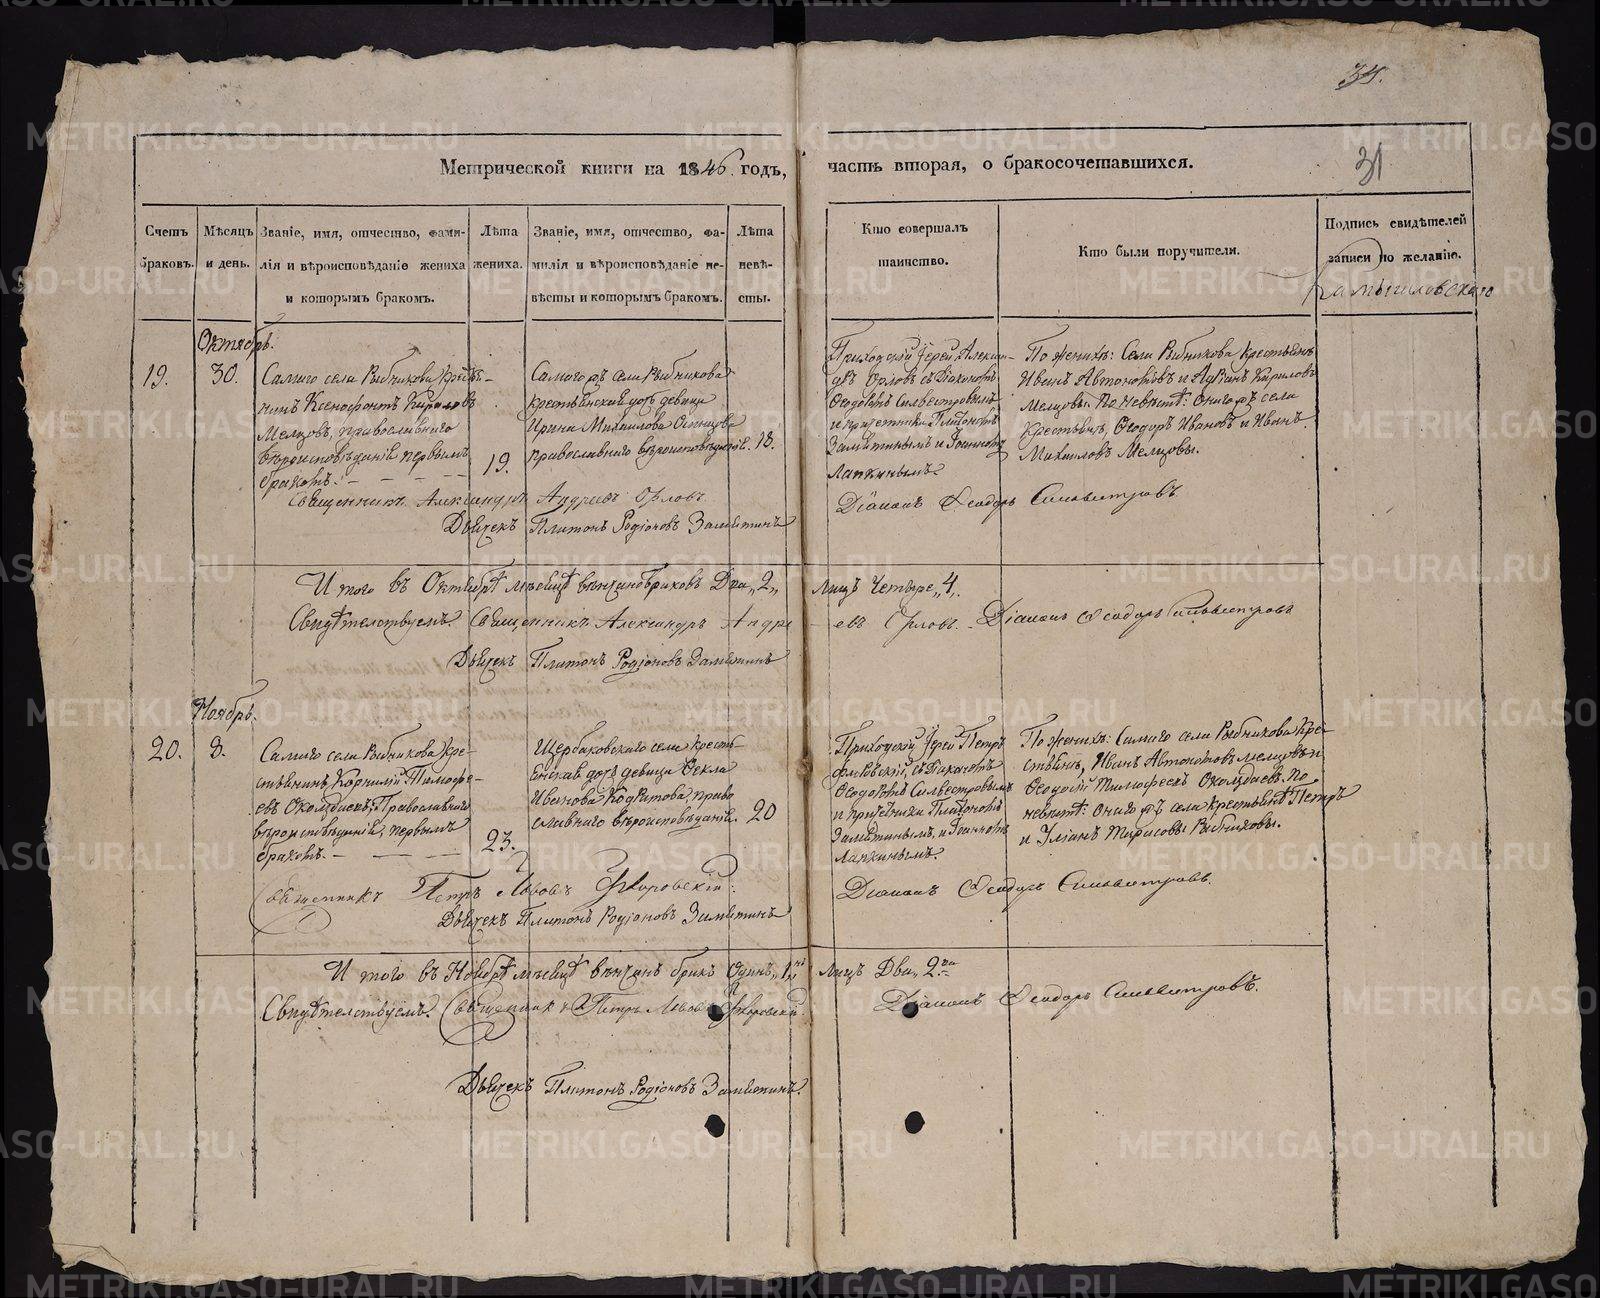 34.
Метрической книги на 1846. годъ,
часть вторая, о бракосочетавшихся.
31
Счетъ браковъ.
Мѣсяцъ и день.
Званіе, имя, отчество, фами-
лія и вѣроисповѣданіе жениха
и которымъ бракомъ.
Лѣта жениха.
Званіе, имя, отчество, фа-
милія и вѣроисповѣданіе не-
вѣсты и которымъ бракомъ.
Лѣта невѣ-
сты.
Кто совершалъ
таинство.
Кто были поручители.
Подпись свидѣтелей
записи по желанію.
Камышловскаго
Октябрь.
19.
30.
Самаго села Рыбникова Кресть-
нинъ Ксенофонтъ Кириловъ
Мелцовъ, православнаго
вѣроисповѣданія первымъ
бракомъ. -
19.
Самаго жъ села Рыбникова
крестьянская дочь девица
Ирина Михаилова
православнаго вѣроисповѣданія.
18.
Приходской Іерей Алексан-
дръ Орловъ съ Діакономъ
Өеодоромъ Сильвестровымъ
и причетники Платономъ
Замятинымъ и Іоанномъ
Лапкинымъ.
По женихѣ: Села Рыбникова крестьянъ
Иванъ Автономовъ и Адріанъ Кириловъ
Мелцовы. По невѣстѣ: Онаго жъ села
крестьянъ, Өеодоръ Ивановъ и Иванъ
Михаиловъ Мелцовы.
Священникъ Александръ Андреевъ Орловъ
Діаконъ Ѳеодоръ Сильвестровъ
Дьячекъ Платонъ Родіоновъ Замятинъ
И того въ Октябрѣ мѣсяцѣ вѣнчано браковъ Два „2„
Лицъ Четыре „4„.
Свидѣтелствуемъ. Священникъ Александръ Андре
евъ Орловъ. Діаконъ Ѳеодоръ Сильвестровъ
Дьячекъ Платонъ Родіоновъ Замятинъ
Ноябрь.
20.
8.
Самаго села Рыбникова кре-
стьянинъ Корнилій Тимофе-
евъ Православнаго
вѣроисповѣданія, первымъ
бракомъ. -
23.
Щербаковскаго села кресть-
янская дочь девица Ѳекла
Иванова Кодратова, право
славнаго вѣроисповѣданія.
20
Приходской Іерей Петръ
Флоровскій, съ Діакономъ
Өеодоромъ Сильвестровымъ
и причетники Платономъ
Замятинымъ, и Іоанномъ
Лапкинымъ.
По женихѣ: Самаго села Рыбникова кре-
стьянъ, Иванъ Автономовъ Мелцовъ и
Өеодосій Тимофеевъ По
невѣстѣ: Онаго жъ села крестьянъ Петръ
и Уліанъ Тарасовы Рыбниковы.
Священникъ Петръ Львовъ Флоровскій.
Діаконъ Ѳеодоръ Сильвестровъ.
Дьячекъ Платонъ Родіоновъ Замятинъ
И того въ Ноябрѣ мѣсяцѣ вѣнчанъ бракъ Одинъ „1„
Лицъ Два, 2
Свидѣтелствуемъ. Священникъ Петръ Львовъ Флоровскій.
Діаконъ Ѳеодоръ Сильвестровъ.
Дьячекъ Платонъ Родіоновъ Замятинъ.
METRIKI.GASO-URAL.RU